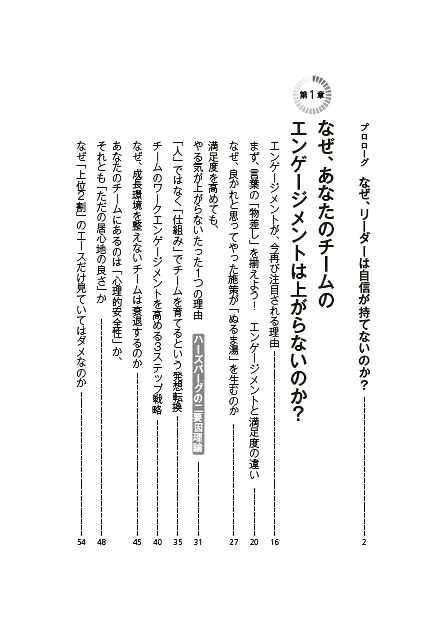 プロローグ　なぜ、リーダーは自信が持てないのか？ 2
第1章
なぜ、あなたのチームの
エンゲージメントは上がらないのか？
エンゲージメントが、今再び注目される理由 16
まず、言葉の「物差し」を揃えよう！　エンゲージメントと満足度の違い 20
なぜ、良かれと思ってやった施策が「ぬるま湯」を生むのか 27
満足度を高めても、
やる気が上がらないたった1つの理由　ハーズバーグの二要因理論 31
「人」ではなく「仕組み」でチームを育てるという発想転換 35
チームのワークエンゲージメントを高める3ステップ戦略 40
なぜ、成長環境を整えないチームは衰退するのか 45
あなたのチームにあるのは「心理的安全性」か、
それとも「ただの居心地の良さ」か 48
なぜ「上位2割」のエースだけ見ていてはダメなのか 54